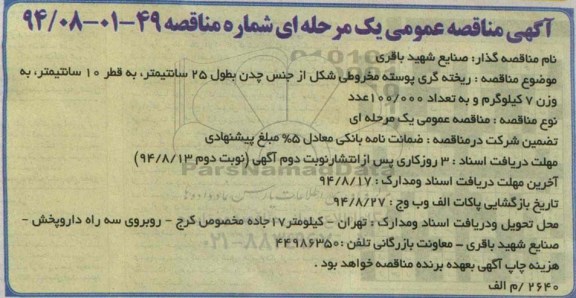 آگهی مناقصه عمومی یک مرحله ای شماره مناقصه ۴۹-۰۱-۹۴/۰۸
نام مناقصه گذار: صنایع شهید باقری
موضوع مناقصه : ریخته گری پوسته مخروطی شکل از جنس چدن بطول ۲۵ سانتیمتر، به قطر ۱۰ سانتیمتر، به
وزن ۷ کیلوگرم و به تعداد ۱۰۰/۰۰۰عدد
نوع مناقصه : مناقصه عمومی یک مرحله ای
تضمین شرکت درمناقصه : ضمانت نامه بانکی معادل ۵% مبلغ پیشنهادی
مهلت دریافت اسناد : ۳ روزکاری پس ازانتشارنوبت دوم آگهی (نوبت دوم ۹۴/۸/۱۳)
ParsNamadData
آخرین مهلت دریافت اسناد ومدارک : ۹۴/۸/۱۷
تاریخ بازگشایی پاکات الف وب وج : ۹۴/۸/۲۷
محل تحویل ودریافت اسناد ومدارک . تهران - کیلومتر۱۷جاده مخصوص کرج - روبروی سه راه داروپخش -
صنایع شهید باقری - معاونت بازرگانی تلفن :۴۴۹۸۶۳۵۰
هزینه چاپ آگهی بعهده برنده مناقصه خواهد بود .
۲۶۴۰ /م الف